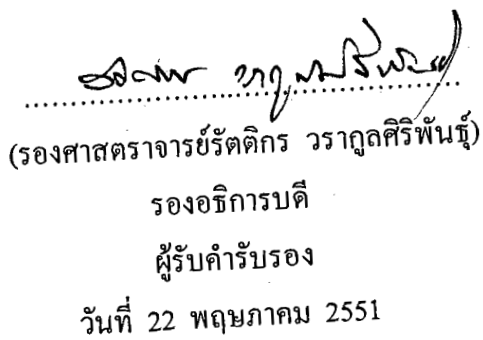 (รองศาสตราจารย์รัตติกร วรากูลศิริพันธุ์)
รองอธิการบดี
ผู้รับคำรับรอง
วันที่ 22 พฤษภาคม 2551